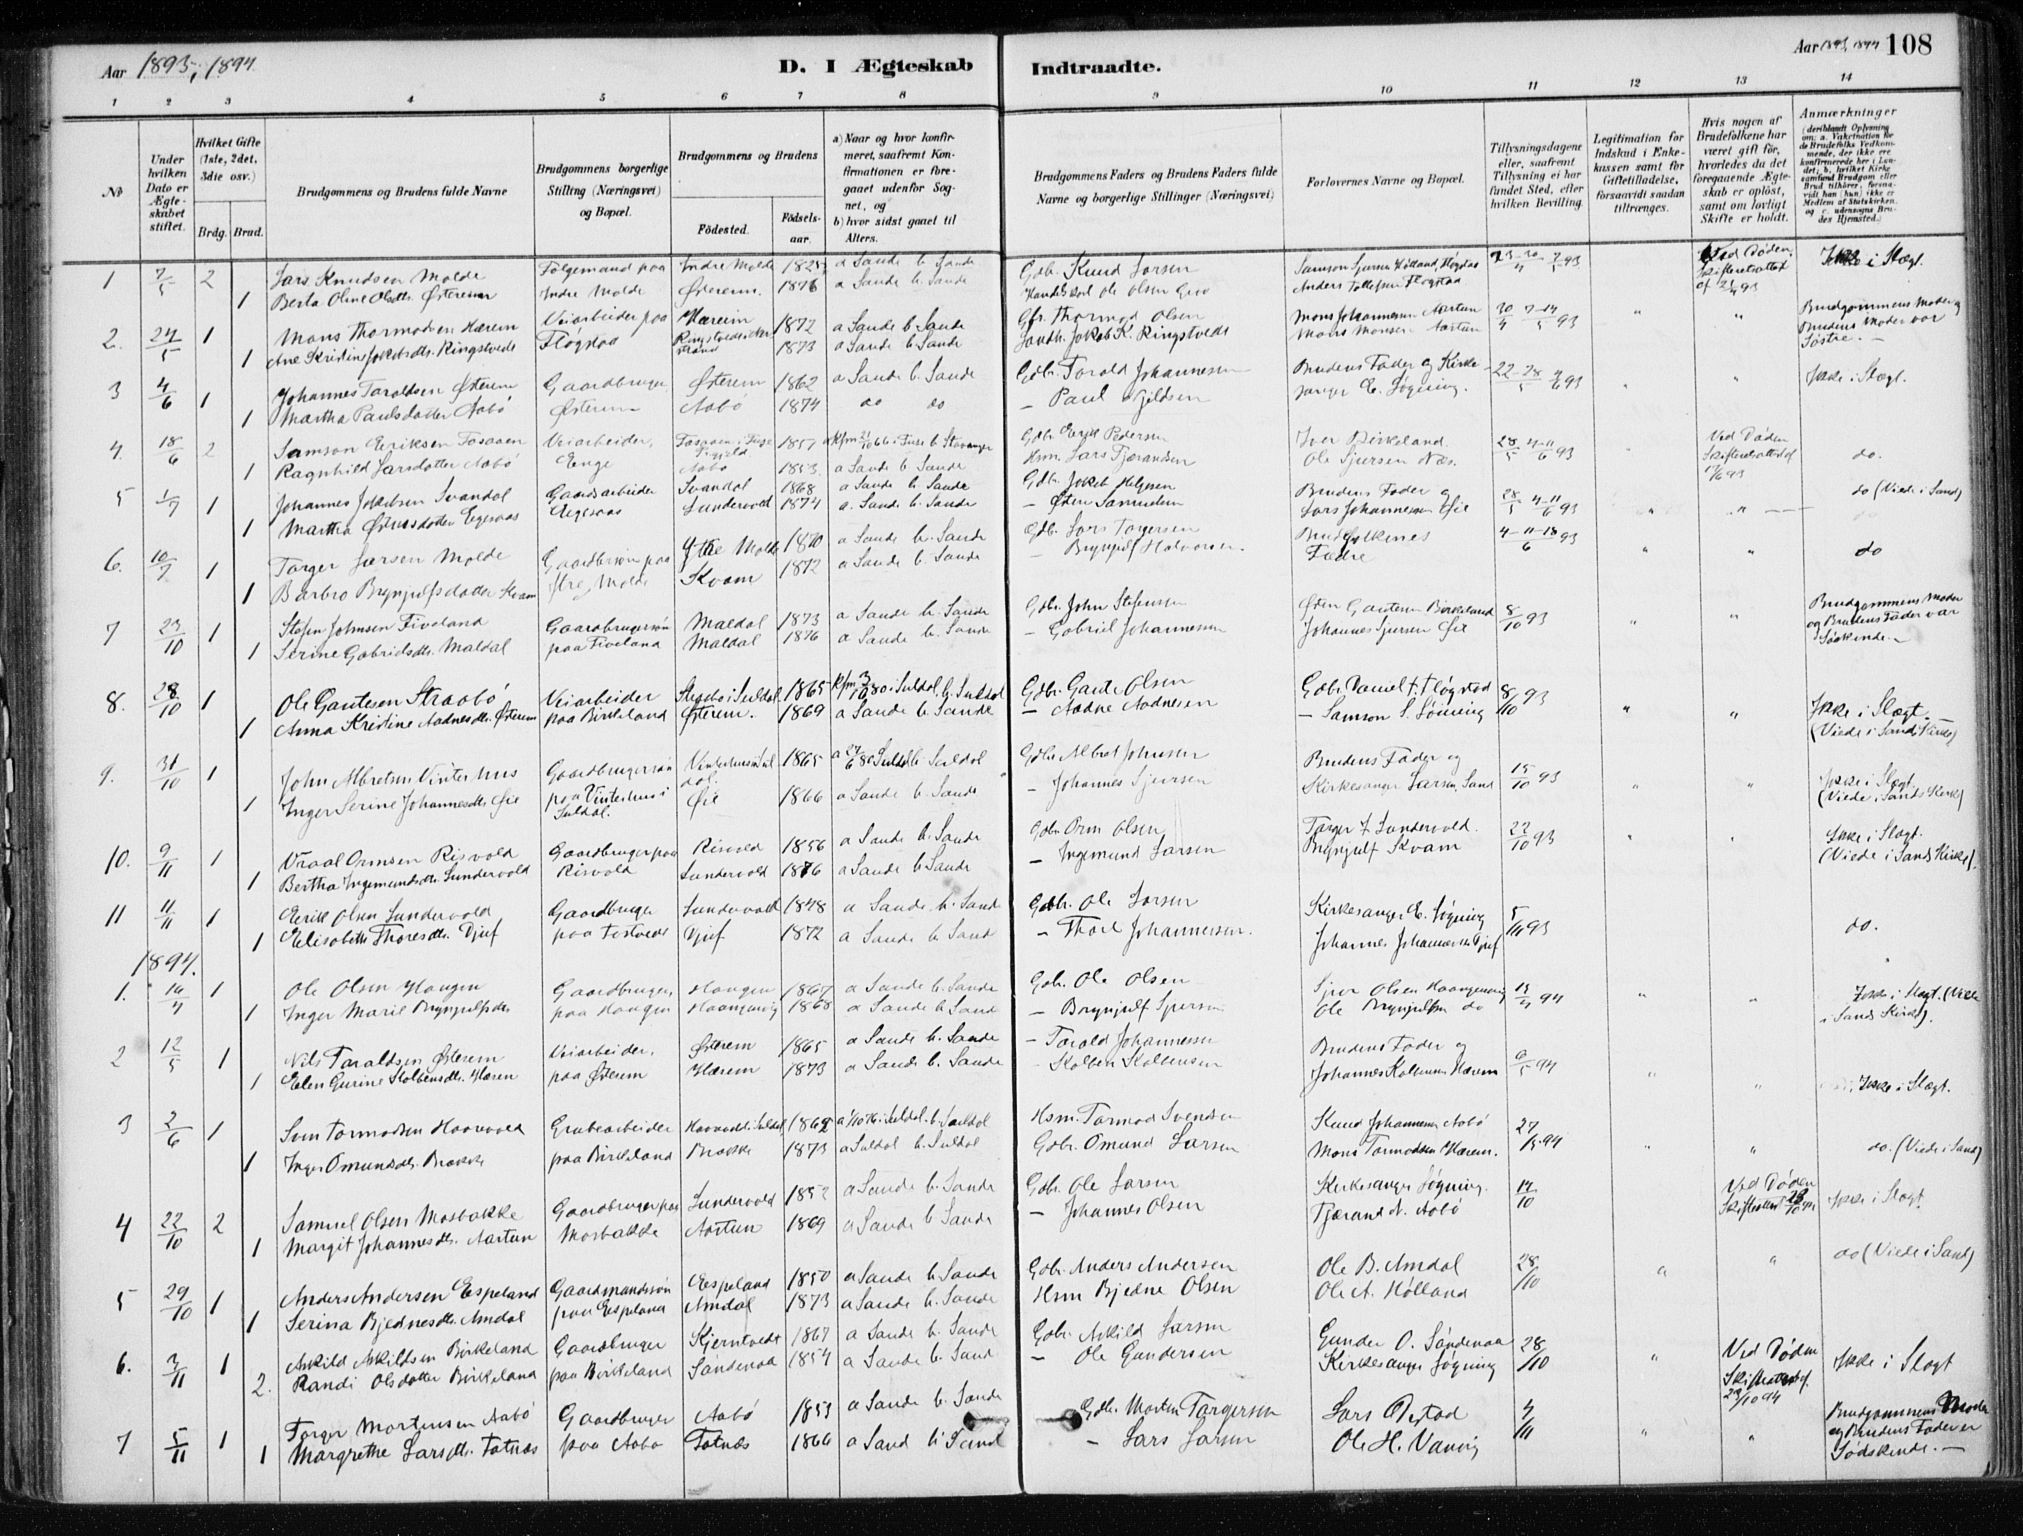 Aar 1893, 1894.
D. I Ægteskab
Indtraadte.
Aar 1893, 1894
108
1 2 3 4 5 6 7 8 9 10 11 12 13 14
No
Under hvilken Dato er Ægteskabet stiftet.
Hvilket Gifte (1ste, 2det, 3die osv.)
Brdg. Brud.
Brudgommens og Brudens fulde Navne
Brudgommens borgerlige Stilling (Næringsvei) og Bopæl.
Brudgommens og Brudens
Födested.
Födselsaar.
a) Naar og hvor konfirmeret, saafremt Konfirmationen er foregaaet udenfor Sognet, og
b) hvor sidst gaaet til Alters.
Brudgommens Faders og Brudens Faders fulde Navne og borgerlige Stillinger (Næringsvei)
Forlovernes Navne og Bopæl.
Tillysningsdagene eller, saafremt Tillysning ei har fundet Sted, efter hvilken Bevilling.
Legitimation for Indskud i Enkekassen samt for Giftetilladelse, forsaavidt saadan tiltrænges.
Hvis nogen af Brudefolkene har været gift för, hvorledes da det foregaaende Ægteskab er oplöst, samt om lovligt Skifte er holdt.
Anmærkninger
(deriblandt Oplysning om: a. Vakcination for de Brudefolks Vedkommende, der ikke ere konfirmerede her i Landet; b. hvilket Kirkesamfund Brudgom eller Brud tilhörer, forsaavidt han (hun) ikke er Medlem af Statskirken, og c. udensogns Brudes Hjemsted.)
1 7/5 2 Lars Knudsen Molde Følgemand paa Indre Molde 1825 a Sande b. Sande Gdb. Knud Larsen Samson Sjursen Hølland, Fløgstad 23-30/4 7/5 93 Ved Døden Ikke i Slægt.
1 Berta Oline Olsdtr. Østerem Indre Molde Østerem. 1876 a Sande b. Sande Ole Olsen Anders Tollefsen Fløgstad
2. 24/5 1 Mons Thormodsen Hærem Veiarbeider paa Hæreim 1872 a Sande b Sande Gfr. Thormod Olsen Mons Johannesen Aartun 30/4 7-14/5 93 " " Brudgommens Moder og
1 Ane Kristine Jakobsdtr. Ringstveit Fløgstad 1873 a Sande b. Sande Jakob K. Ringstvedt Mons Monsen Aartun Brudens Moder var Søstre. -
3 4/6 1 Johannes Taraldsen Østerem Gaardbruger Østerem 1862 a Sande b. Sande Gdb. Tarald Johannessen Brudens Fader og Kirke- 22-28/5 4/6 93 " " Ikke i Slægt.
1 Martha Paulsdatter Aabø Østerem Aabø 1874 do do - Paul Kjeldsen sanger E. Løgning.
4. 18/6 2 Samson Eriksen Fosaaen Veiarbeider, Fosaaen i 1857 b Stavanger Gdb. Erik Pedersen Iver Birkeland 28/5 4-11/6 93 " Ved Døden do.
1 Ragnhild Larsdatter Aabø Enge Aabø 1853. a Sande b Sande Hsm. Lars Tjærandsen Ole Sjursen Næs. Skifteretsattest
5 1/7 1 Johannes Jakobsen Svandal Gaardsarbeider Svandal 1868 a Sande b. Sande Gdb. Jakob Helgesen Brudens Fader og 28/5 4-11/6 93 " " do (Viede i Sand)
1 Martha Østensdatter Eegesaas Eegesaas Lundevold 1874 a. Sande b. Sande - Østen Samuelsen Lars Johannessen Øie
6. 10/7 1 Targer Larsen Molde Gaardbrsøn paa Ytre Molde 1870 a Sande b. Sande Gdb. Lars Torgersen Brudfolkenes 4-11-18/6 93 " " do
1 Barbro Brynjulfsdatter Kvam Ytre Molde Kvam 1872 a Sande b. Sande - Brynjulf Halvorsen. Fædre
7 23/10 1 Stefen Johnsen Fiveland Gaardbrugersøn Maldal 1873 a Sande b. Sande Gdb. John Stefensen Østen Gautesen Birkeland 8/10 93 " " Brudgommens Moder
1 Serine Gabrielsdtr. Maldal paa Fiveland Maldal 1876 a Sande b. Sande - Gabriel Johannessen Johannes Sjursen Øie og Brudens Fader var Søskende. -
8. 28/10 1 Ole Gautesen Straabø Veiarbeider Straabø i Suldal 1865 Kfm. i Suldal, b. Suldal Gdb. Gaute Olsen Gdbr. Daniel T. Fløgstad 8/10 93 " " Ikke i Slægt.
1 Anna Kristine Aadnesdtr. Østerem paa Birkeland Østerem. 1869 a Sande b. Sande - Aadne Aadnesen - Samson S. Løining (Viede i Sands Kirke)
9. 31/10 1 John Albretsen Vinterhus Gaardbrugersøn Vinterhus i Suldal 1865 Suldal b. Suldal Gdb. Albret Johnsen Brudens Fader og 15/10 93 " " Ikke i Slægt.
1 Inger Serine Johannesdtr. Øie paa Vinterhus i Suldal. Øie 1866 a Sande b. Sande - Johannes Sjursen Kirkesanger Larsen, Sand (Viede i Sands Kirke)
10. 9/11 1 Vraal Ormsen Risvold Gaardbruger paa Risvold 1856 a Sande b. Sande Gdb. Orm Olsen Targer T. Lundevold. 22/10 93 " " Ikke i Slægt.
1 Bertha Ingemundsdtr. Lundevold Risvold Lundevold 1876 a Sande b. Sande - Ingemund Larsen Brynjulf Kvam (Viede i Sands Kirke).
11 11/11 1 Eerik Olsen Lundevold Gaardbruger Lundevold 1848 a Sande b. Sand Gdb. Ole Larsen Kirkesanger E. Løgning 5/11 93 do.
1 Eelisabeth Thoresdtr. Djuf paa Tostvedt Djuf 1872 a Sande b. Sand - Thore Johannessen. Johannes Johannessen Djuf
1894.
1. 16/4 1 Ole Olsen Haugen Gaardbruger, Haugen 1867 a Sande b. Sande Gdb. Ole Olsen Sjur Olsen 15/4 94 " " Ikke i Slægt. (Viede
1 Inger Marie Brynjulfsdtr paa Haugen 1868 a Sande b. Sand - Brynjulf Sjursen Ole Brynjulfsen do i Sands Kirke).
2 12/5 1 Nils Taraldsen Østerem Veiarbeider, Østerem 1865 a Sande b. Sande - Tarald Johannessen Brudens Fader og 6/5 94 " " Ikke i Slægt.
1 Elen Gurine Kolbensdtr. Hærem paa Østerem Hærem 1873 a Sande b. Sande - Kolben Kolbensen Johannes Kolbensen Hærem
3 2/6 1 Sven Tormodsen Haavold Grubearbeider i Suldal Suldal b. Suldal Hsm. Tormod Svendsen Knud Johannessen Aabø 27/5 94 " " do. (Viede i Sand)
1 Inger Omundsdtr. Brække paa Birkeland Brække 1873 a Suldal b. Suldal Gdb. Omund Larsen Mons Tormodsen Hærem.
4 22/10 2 Samuel Olsen Mosbakke Gaardbruger paa Lundevold 1852 a Sande b. Sande Gdb. Ole Larsen Kirkesanger Løgning. 14/10 Ved Døden Ikke i Slægt.
1 Margit Johannesdtr. Aartun Mosbakke Aartun 1869 a Sande b. Sande - Johannes Olsen Tjærand N. Aabø Skifteattest
5 29/10 1 Anders Andersen Espeland Gaardmandssøn Eespeland 1850 a Sande b. Sande Gdb. Anders Andersen Ole B. Amdal 28/10 " " do (Viede i Sand)
1 Serina Bjednesdtr. Amdal paa Espeland Amdal 1873 a Sande b. Sande Hsm Bjedne Olsen Ole A. Hølland
6. 3/11 1 Askild Askildsen Birkeland Gaardbruger Kjerntvedt 1867 a Sande b. Sande Gdb. Askild Larsen Gunder O. Sandenaa 28/10 " Ved Døden Ikke i Slægt
2. Randi Olsdatter Birkeland paa Birkeland Sandenaa 1854 a Sande b. Sand - Ole Gundersen Kirkesanger Løgning Skifteattest af 29/10 94
7 5/11 1 Torger Mortensen Aabø Gaardbruger Aabø 1853 a Sande b. Sande Gdb. Morten Torgersen Lars Østad 4/11 " " Brudgommens Moder
1 Margrethe Larsdtr. Tatnæs paa Aabø Tatnæs 1866 a Sand b. Sand - Lars Larsen Ole H. Vanvig og Brudens Fader er Sødskende. -